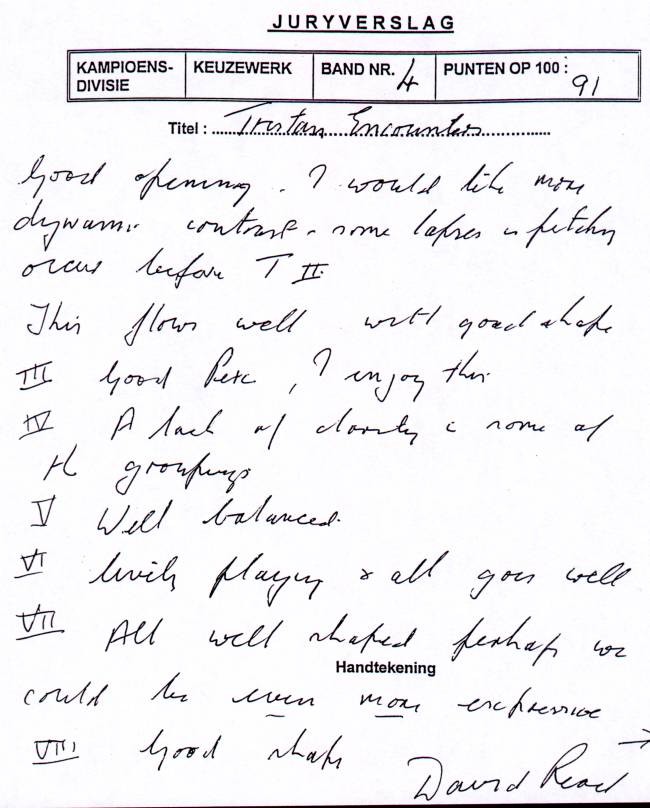 JURYVERSLAG
KAMPIOENS-DIVISIE KEUZEWERK BAND NR. 4 PUNTEN OP 100 : 91
Titel : Tristan Encounters
Good opening. I would like more
dynamic contrast - some lapses in pitching
occur before T II.
This flows well with good shape
III Good Perc, I enjoy this
IV A lack of clarity in some of
the groupings
V Well balanced.
VI lively playing & all goes well
VII All well shaped perhaps we
Handtekening
could be even more expressive
VIII Good shape →
David Read